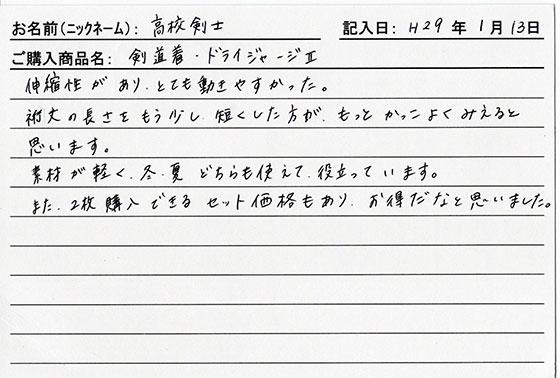 お名前(ニックネーム): 高校剣士 記入日: H29 年 1月 13日
ご購入商品名: 剣道着・ドライジャージⅡ
伸縮性があり、とても動きやすかった。
裄丈の長さをもう少し、短くした方が、もっとかっこよくみえると
思います。
素材が軽く、冬、夏 どちらも使えて、役立っています。
また、2枚購入できるセット価格もあり、お得だなと思いました。